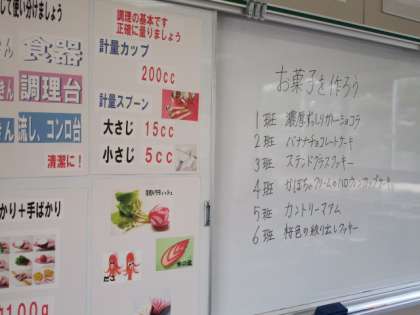 して使い分けましょう
さん 食器
さん 調理台
さん 流し、コンロ台
清潔に!
調理の基本です
正確に量りましょう
計量カップ
200cc
計量スプーン
大さじ 15cc
小さじ 5cc
かり+手ばかり
100g
お菓子を作ろう
1班 濃厚ずっしりガトーショコラ
2班 バナナチョコレートケーキ
3班 ステンドグラスクッキー
4班 かぼちゃクリームのハロウィンカップケーキ
5班 カントリーマアム
6班 特色の絞り出しクッキー